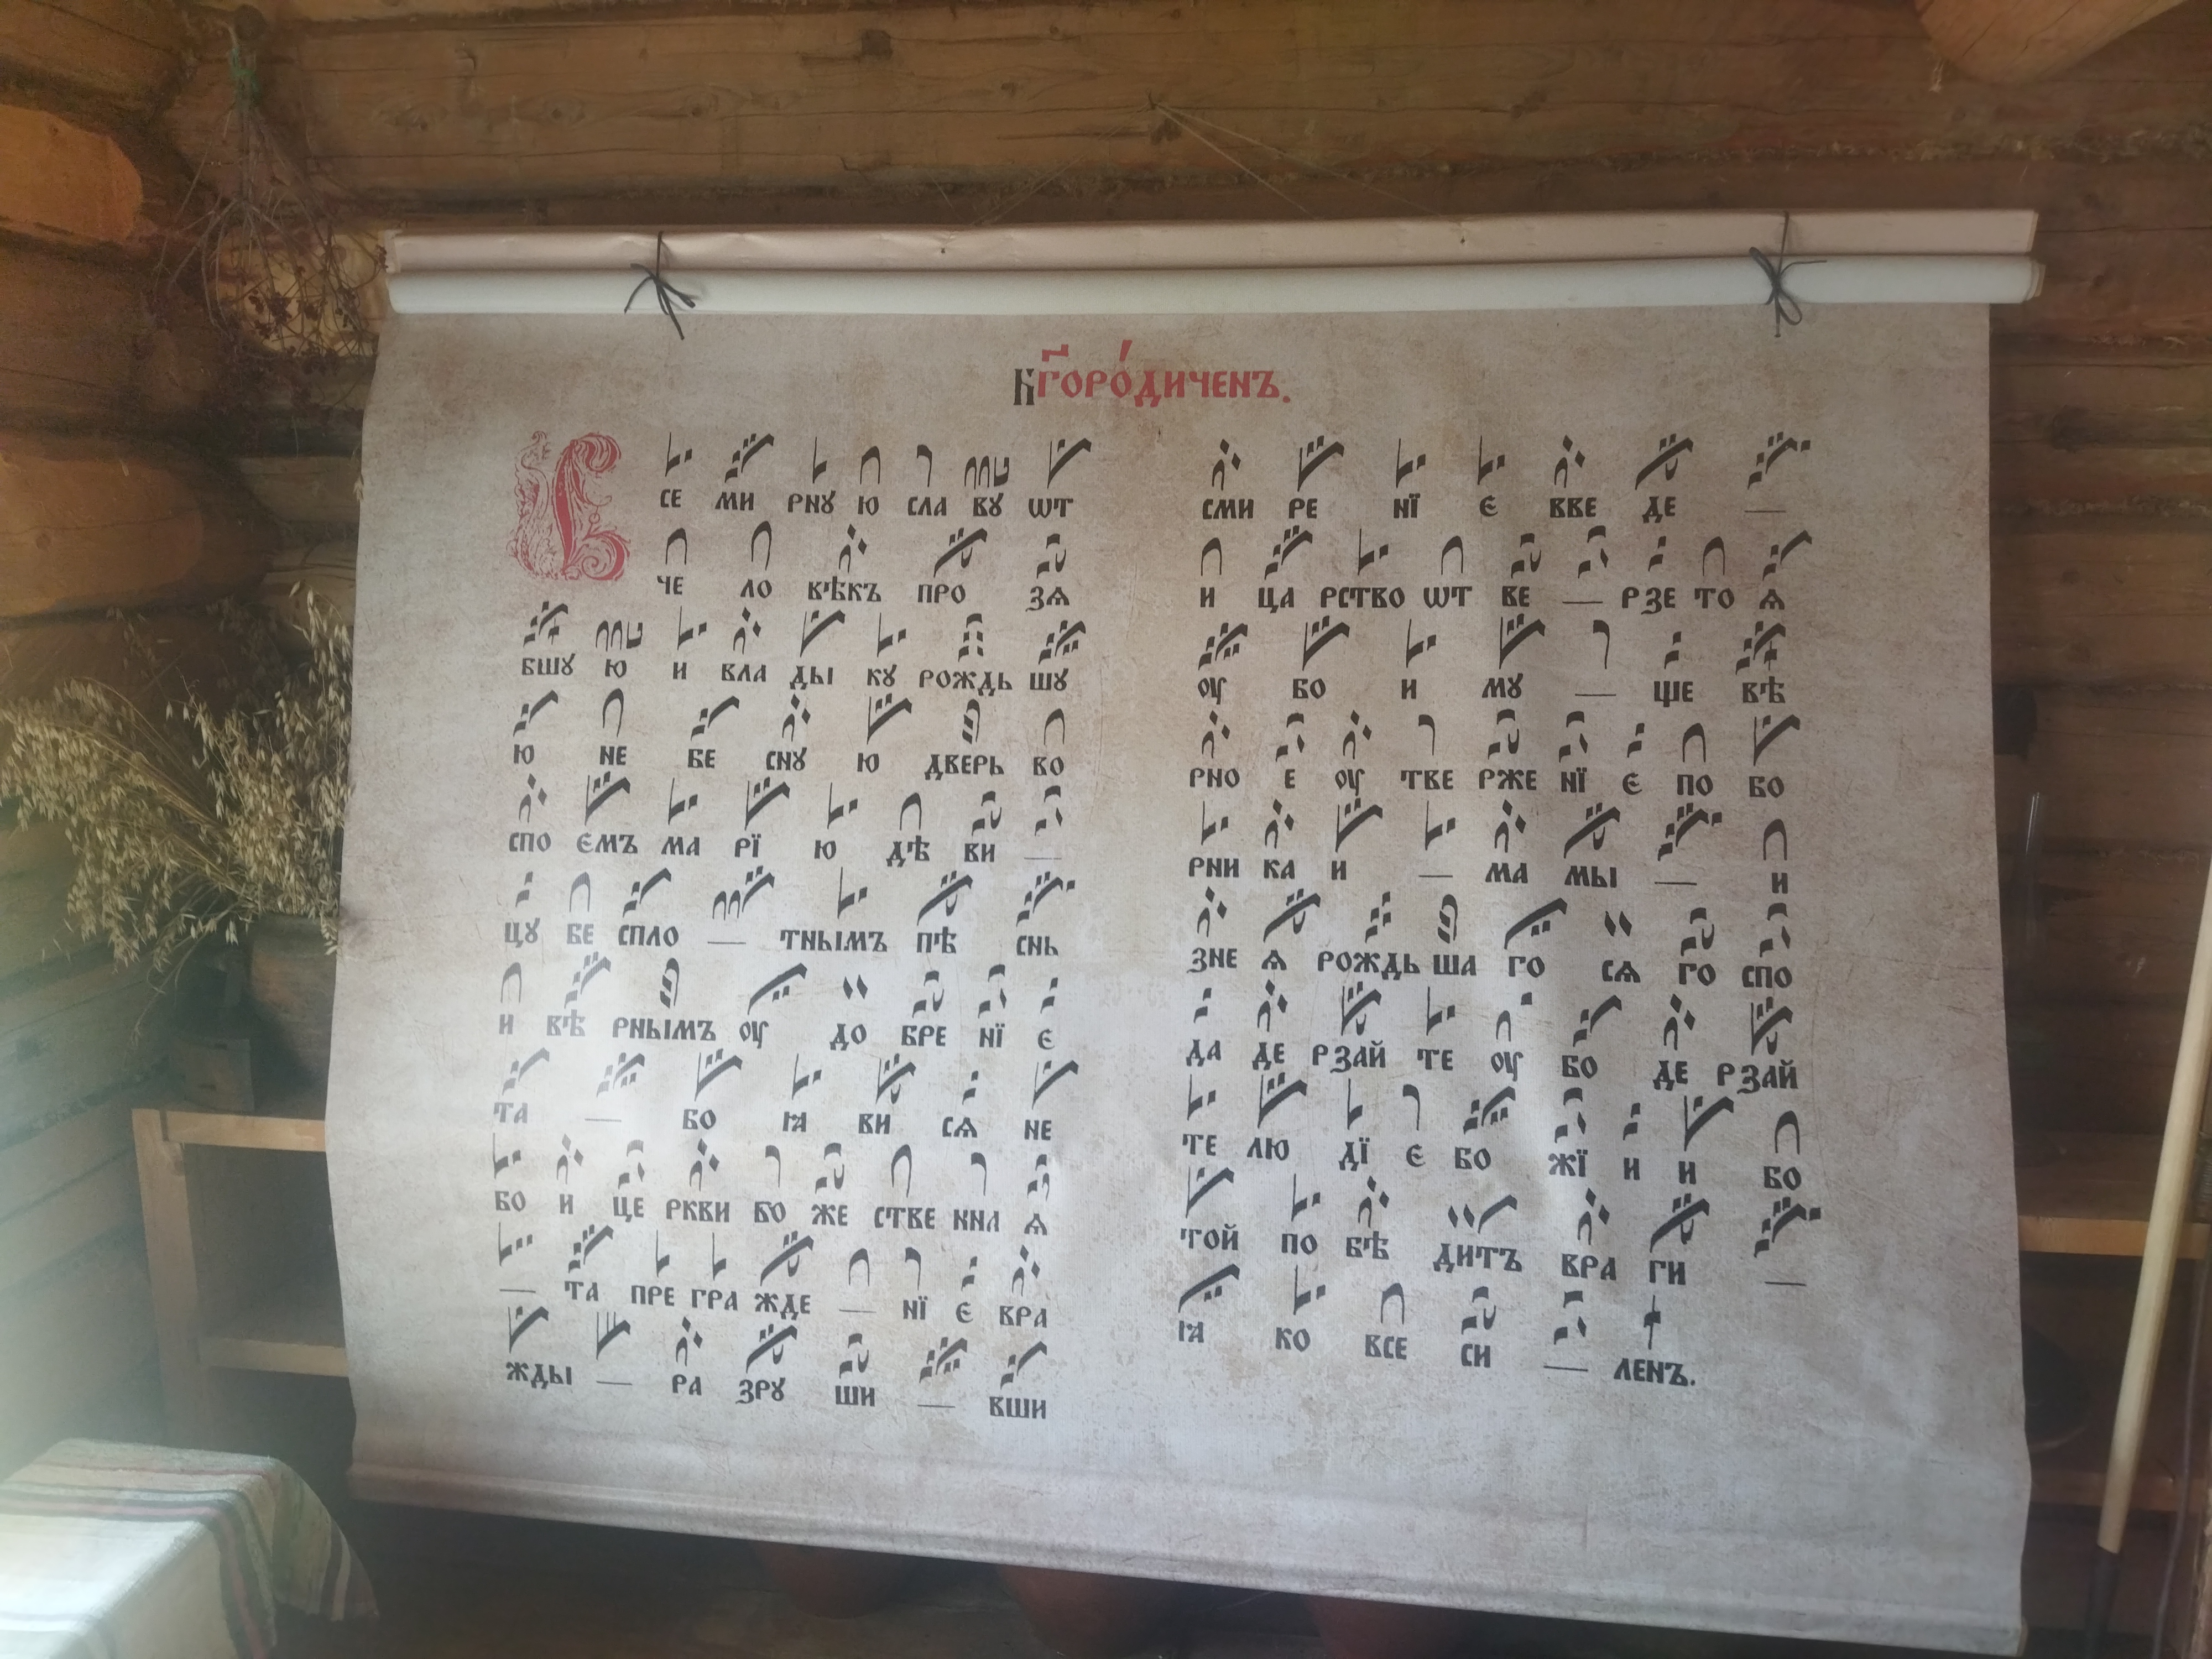 Бг҃оро́диченъ.
В
СЕ МИ РНꙊ Ю СЛА ВꙊ ѾТ
ЧЕ ЛО ВѢКЪ ПРО ЗѦ
БШꙊ Ю И ВЛА ДЫ КꙊ РОЖДЬ ШꙊ
Ю НЕ БЕ СНꙊ Ю ДВЕРЬ ВО
СПО ЄМЪ МА РЇ Ю ДѢ ВИ —
ЦꙊ БЕ СПЛО — ТНЫМЪ ПѢ СНЬ
И ВѢ РНЫМЪ ОУ ДО БРЕ НЇ Є
ТА — БО Ꙗ ВИ СѦ НЕ
БО И ЦЕ РКВИ БО ЖЕ СТВЕ ННА Ѧ
— ТА ПРЕ ГРА ЖДЕ — НЇ Є ВРА
ЖДЫ — РА ЗРꙊ ШИ — ВШИ
СМИ РЕ НЇ Є ВВЕ ДЕ —
И ЦА РСТВО ѾТ ВЕ — РЗЕ ТО Ѧ
ОУ БО И МꙊ — ЩЕ ВѢ
РНО Е ОУ ТВЕ РЖЕ НЇ Є ПО БО
РНИ КА И — МА МЫ — И
ЗНЕ Ѧ РОЖДЬ ША ГО СѦ ГО СПО
ДА ДЕ РЗАЙ ТЕ ОУ БО ДЕ РЗАЙ
ТЕ ЛЮ ДЇ Є БО ЖЇ И И БО
ТОЙ ПО БѢ ДИТЪ ВРА ГИ —
Ꙗ КО ВСЕ СИ — ЛЕНЪ.